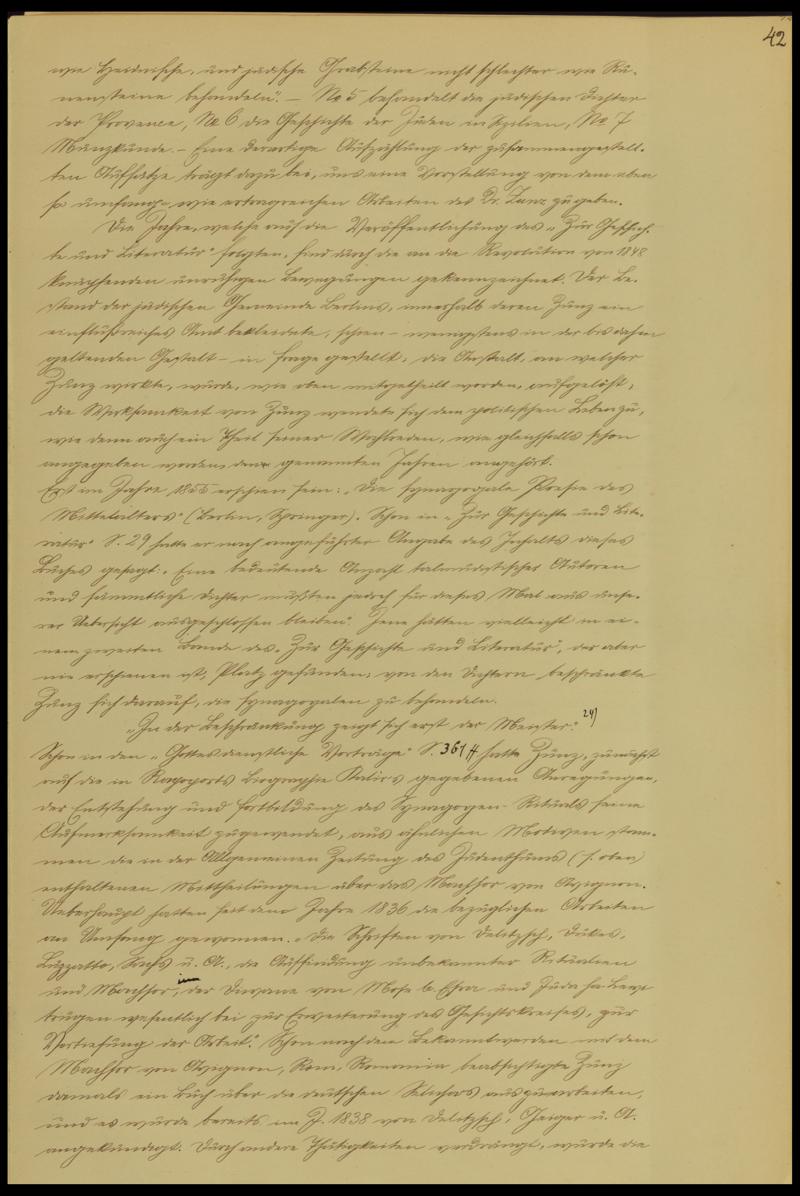 42
wie heidnische, und jüdische Grabsteine nicht schlechter wie Ru-
nensteine behandeln". – No 5 behandelt die jüdischen Dichter
der Provence, No 6 die Geschichte der Juden in Sizilien, No 7
Münzkunde. – Eine derartige Aufzählung der zusammengestell-
ten Aufsätze trägt dazu bei, uns eine Vorstellung von dem eben
so umfang- wie ertragreichen Arbeiten des Dr. Zunz zu geben.
Die Jahre, welche auf die Veröffentlichung des „Zur Geschich-
te und Literatur" folgten, sind durch die an die Revolution von 1848
knüpfenden unruhigen Bewegungen gekennzeichnet. Der Be-
stand der jüdischen Gemeinde Berlins, innerhalb deren Zunz ein
einflußreiches Amt bekleidete, schien – wenigstens in der bis dahin
geltenden Gestalt – in Frage gestellt, die Anstalt, an welcher
Zunz wirkte, wurde, wie oben mitgetheilt worden, aufgelöst,
die Wirksamkeit von Zunz wendete sich dem politischen Leben zu,
wie denn auch ein Theil seiner Wahlreden, wie gleichfalls schon
angegeben worden, den genannten Jahren angehört.
Erst im Jahre 1855 erschien sein: „Die synagogale Poesie des
Mittelalters" (Berlin, Springer). Schon in „Zur Geschichte und Lite-
ratur" S. 29 hatte er nach angeführter Angabe des Inhalts dieses
Buches gesagt: „Eine bedeutende Anzahl talmudistischer Autoren
und sämmtliche Dichter mußten jedoch für dieses Mal aus unse-
rer Uebersicht ausgeschlossen bleiben". Jene hätten vielleicht in ei-
nem zweiten Bande des „Zur Geschichte und Literatur", der aber
nie erschienen ist, Platz gefunden; von den Dichtern beschränkte
Zunz sich darauf, die synagogalen zu behandeln.
„In der Beschränkung zeigt sich erst der Meister". 24)
Schon in den „Gottesdienstliche Vorträge" S. 361 ff hatte Zunz, zunächst
auf die in Rapoports Biographie Kalirs gegebenen Anregungen,
der Entstehung und Fortbildung des Synagogen-Rituals seine
Aufmerksamkeit zugewendet, aus ähnlichen Motiven stam-
men die in der Allgemeinen Zeitung des Judenthums (s. oben)
enthaltenen Mittheilungen über das Machsor von Avignon.
Ueberhaupt hatten seit dem Jahre 1836 die bezüglichen Arbeiten
an Umfang gewonnen. „Die Schriften von Delitzsch, Dukes,
Luzzatto, Sachs u. A., die Auffindung unbekannter Ritualien
und Machsor, der Diwane von Mose b. Esra und Juda ha-Levi
trugen wesentlich bei zur Erweiterung des Gesichtskreises, zur
Vertiefung der Arbeit". Schon nach dem Bekanntwerden mit dem
Machsor von Avignon, Rom, Romania beabsichtigte Zunz
damals ein Buch über die deutschen Selichas auszuarbeiten,
und es wurde bereits im J. 1838 von Delitzsch, Geiger u. A.
angekündigt. Durch andere Thätigkeiten verdrängt, wurde die